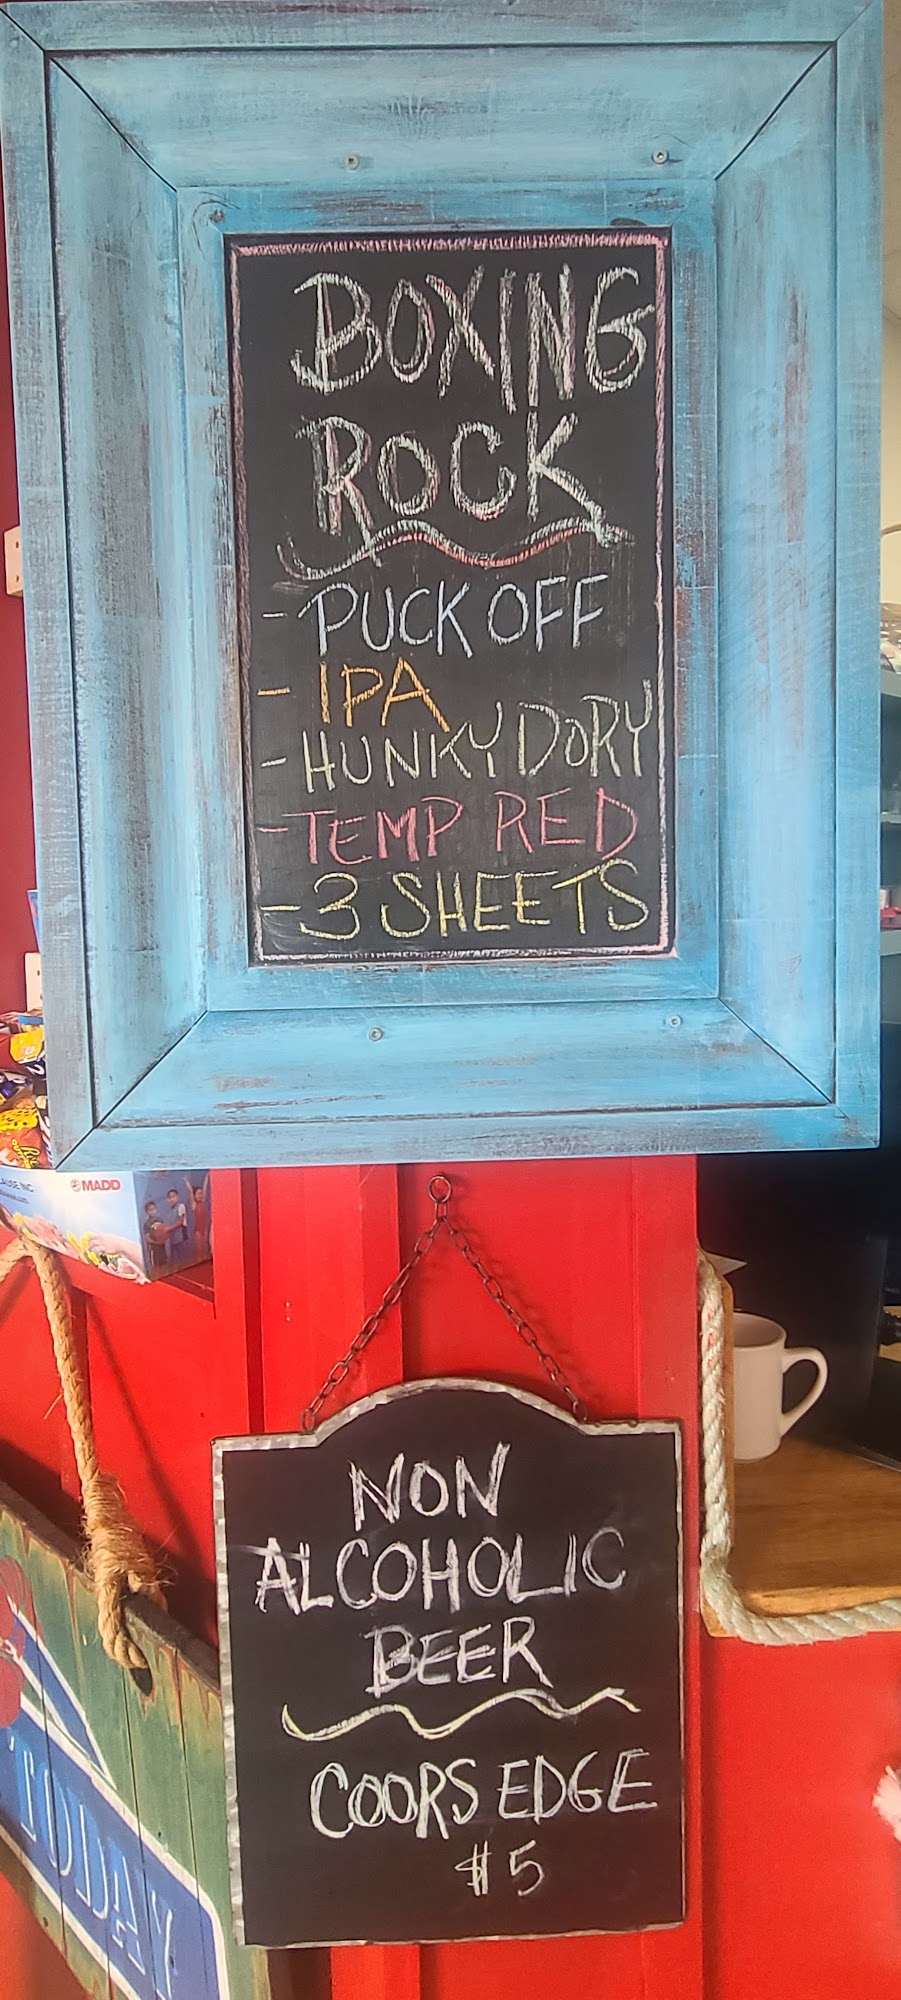 BOXING
ROCK
- PUCK OFF
- IPA
- HUNKY DORY
- TEMP RED
- 3 SHEETS
MADD
NON
ALCOHOLIC
BEER
COORS EDGE
$5
TODAY